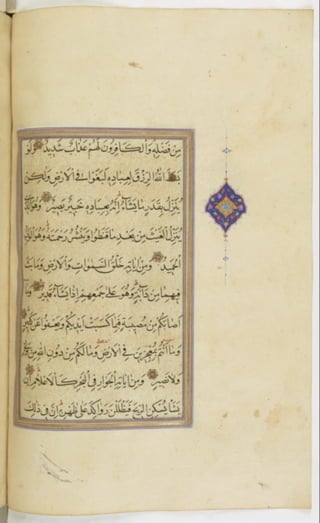 مِن فَضْلِهِ وَالكَافِرُونَ لَهُمْ عَذَابٌ شَدِيدٌ وَلَوْ
بَسَطَ اللهُ الرِّزْقَ لِعِبَادِهِ لَبَغَوْا فِي الْأَرْضِ وَلَكِن
يُنَزِّلُ بِقَدَرٍ مَا يَشَاءُ إِنَّهُ بِعِبَادِهِ خَبِيرٌ بَصِيرٌ وَهُوَ الَّذِي
يُنَزِّلُ الْغَيْثَ مِن بَعْدِ مَا قَنَطُوا وَيَنْشُرُ رَحْمَتَهُ وَهُوَ الْوَلِيُّ
الْحَمِيدُ وَمِنْ آيَاتِهِ خَلْقُ السَّمَوَاتِ وَالْأَرْضِ وَمَا بَثَّ
فِيهِمَا مِن دَابَّةٍ وَهُوَ عَلَى جَمْعِهِمْ إِذَا يَشَاءُ قَدِيرٌ وَمَا
أَصَابَكُمْ مِن مُصِيبَةٍ فَبِمَا كَسَبَتْ أَيْدِيكُمْ وَيَعْفُو عَن كَثِيرٍ
وَمَا أَنْتُمْ بِمُعْجِزِينَ فِي الْأَرْضِ وَمَا لَكُمْ مِن دُونِ اللهِ مِن وَلِيٍّ
وَلَا نَصِيرٍ وَمِنْ آيَاتِهِ الْجَوَارِ فِي الْبَحْرِ كَالْأَعْلَامِ إِن
يَشَأْ يُسْكِنِ الرِّيحَ فَيَظْلَلْنَ رَوَاكِدَ عَلَى ظَهْرِهِ إِنَّ فِي ذَلِكَ